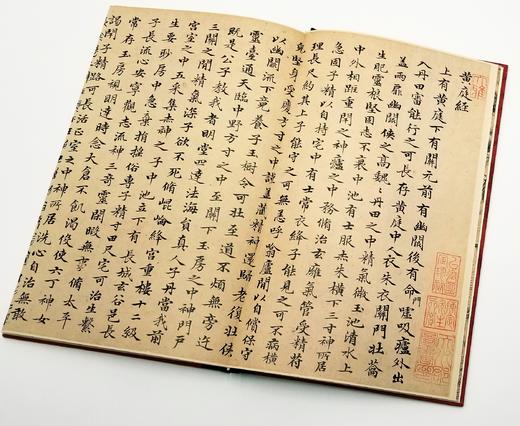 黃庭經
上有黃庭下有關元前有幽闕後有命門噓吸廬外出
入丹田審能行之可長存黃庭中人衣朱衣關門壯蘥
蓋兩扉幽闕俠之高魏=丹田之中精氣微玉池清水上
生肥靈根堅固志不衰中池有士服赤朱橫下三寸神所居
中外相距重閉之神廬之中務脩治玄廱氣管受精符
急固子精以自持宅中有士常衣絳子能見之可不病橫
理長尺約其上子能守之可無恙呼噏廬間以自償保守
貌堅身受慶方寸之中謹蓋藏精神還歸老復壯俠
以幽闕流下竟養子玉樹令可壯至道不煩無旁迕
靈臺通天臨中野方寸之中至關下玉房之中神門戶
既是公子教我者明堂四達法海員真人子丹當我前
三關之間精氣深子欲不死脩崐崘絳宮重樓十二級
宮室之中五采集赤神之子中池立下有長城玄谷邑長
生要眇房中急棄捐搖俗專子精寸田尺宅可治生繫
子長流心安寧觀志流神三奇靈閑暇無事脩太平
常存玉房視明達時念大倉不飢渴役使六丁神女
謁閉子精路可長活正室之中神所居洗心自治無敢